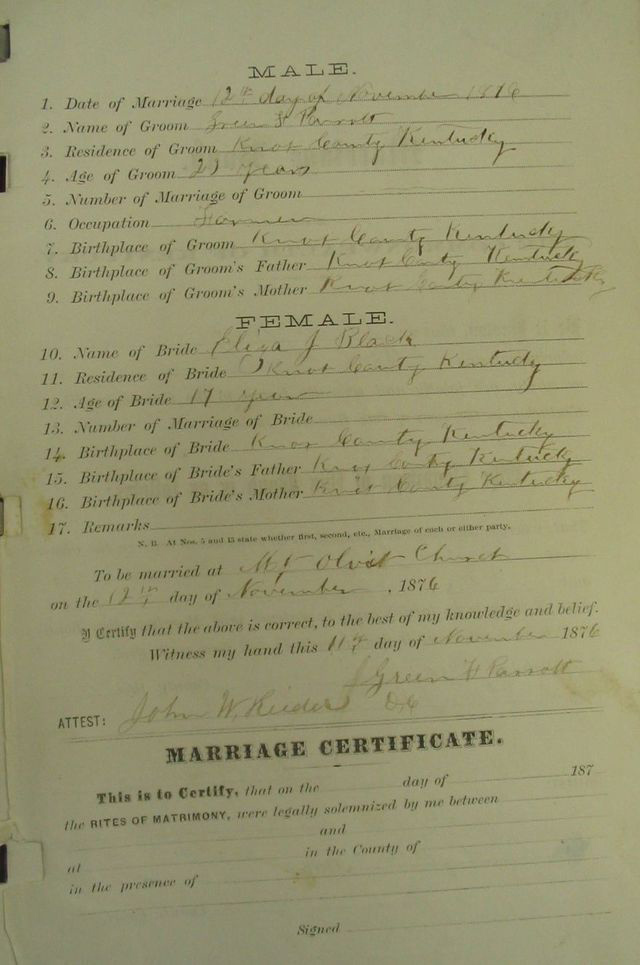 MALE.
1. Date of Marriage 12th day of November 1876
2. Name of Groom Green H Parrott
3. Residence of Groom Knox County Kentucky
4. Age of Groom years
5. Number of Marriage of Groom
6. Occupation Farmer
7. Birthplace of Groom Knox County Kentucky
8. Birthplace of Groom's Father Knox County Kentucky
9. Birthplace of Groom's Mother Knox County Kentucky
FEMALE.
10. Name of Bride Eliza J Black
11. Residence of Bride Knox County Kentucky
12. Age of Bride 17 years
13. Number of Marriage of Bride
14. Birthplace of Bride Knox County Kentucky
15. Birthplace of Bride's Father Knox County Kentucky
16. Birthplace of Bride's Mother Knox County Kentucky
17. Remarks
N. B. At Nos. 5 and 13 state whether first, second, etc., Marriage of each or either party.
To be married at Mt Olivet Church
on the 12th day of November, 1876
I Certify that the above is correct, to the best of my knowledge and belief.
Witness my hand this 11th day of November 1876
Green H Parrott
ATTEST: John W. DC
MARRIAGE CERTIFICATE.
This is to Certify, that on the day of 187
the RITES OF MATRIMONY, were legally solemnized by me between
and
at in the County of
in the presence of
Signed